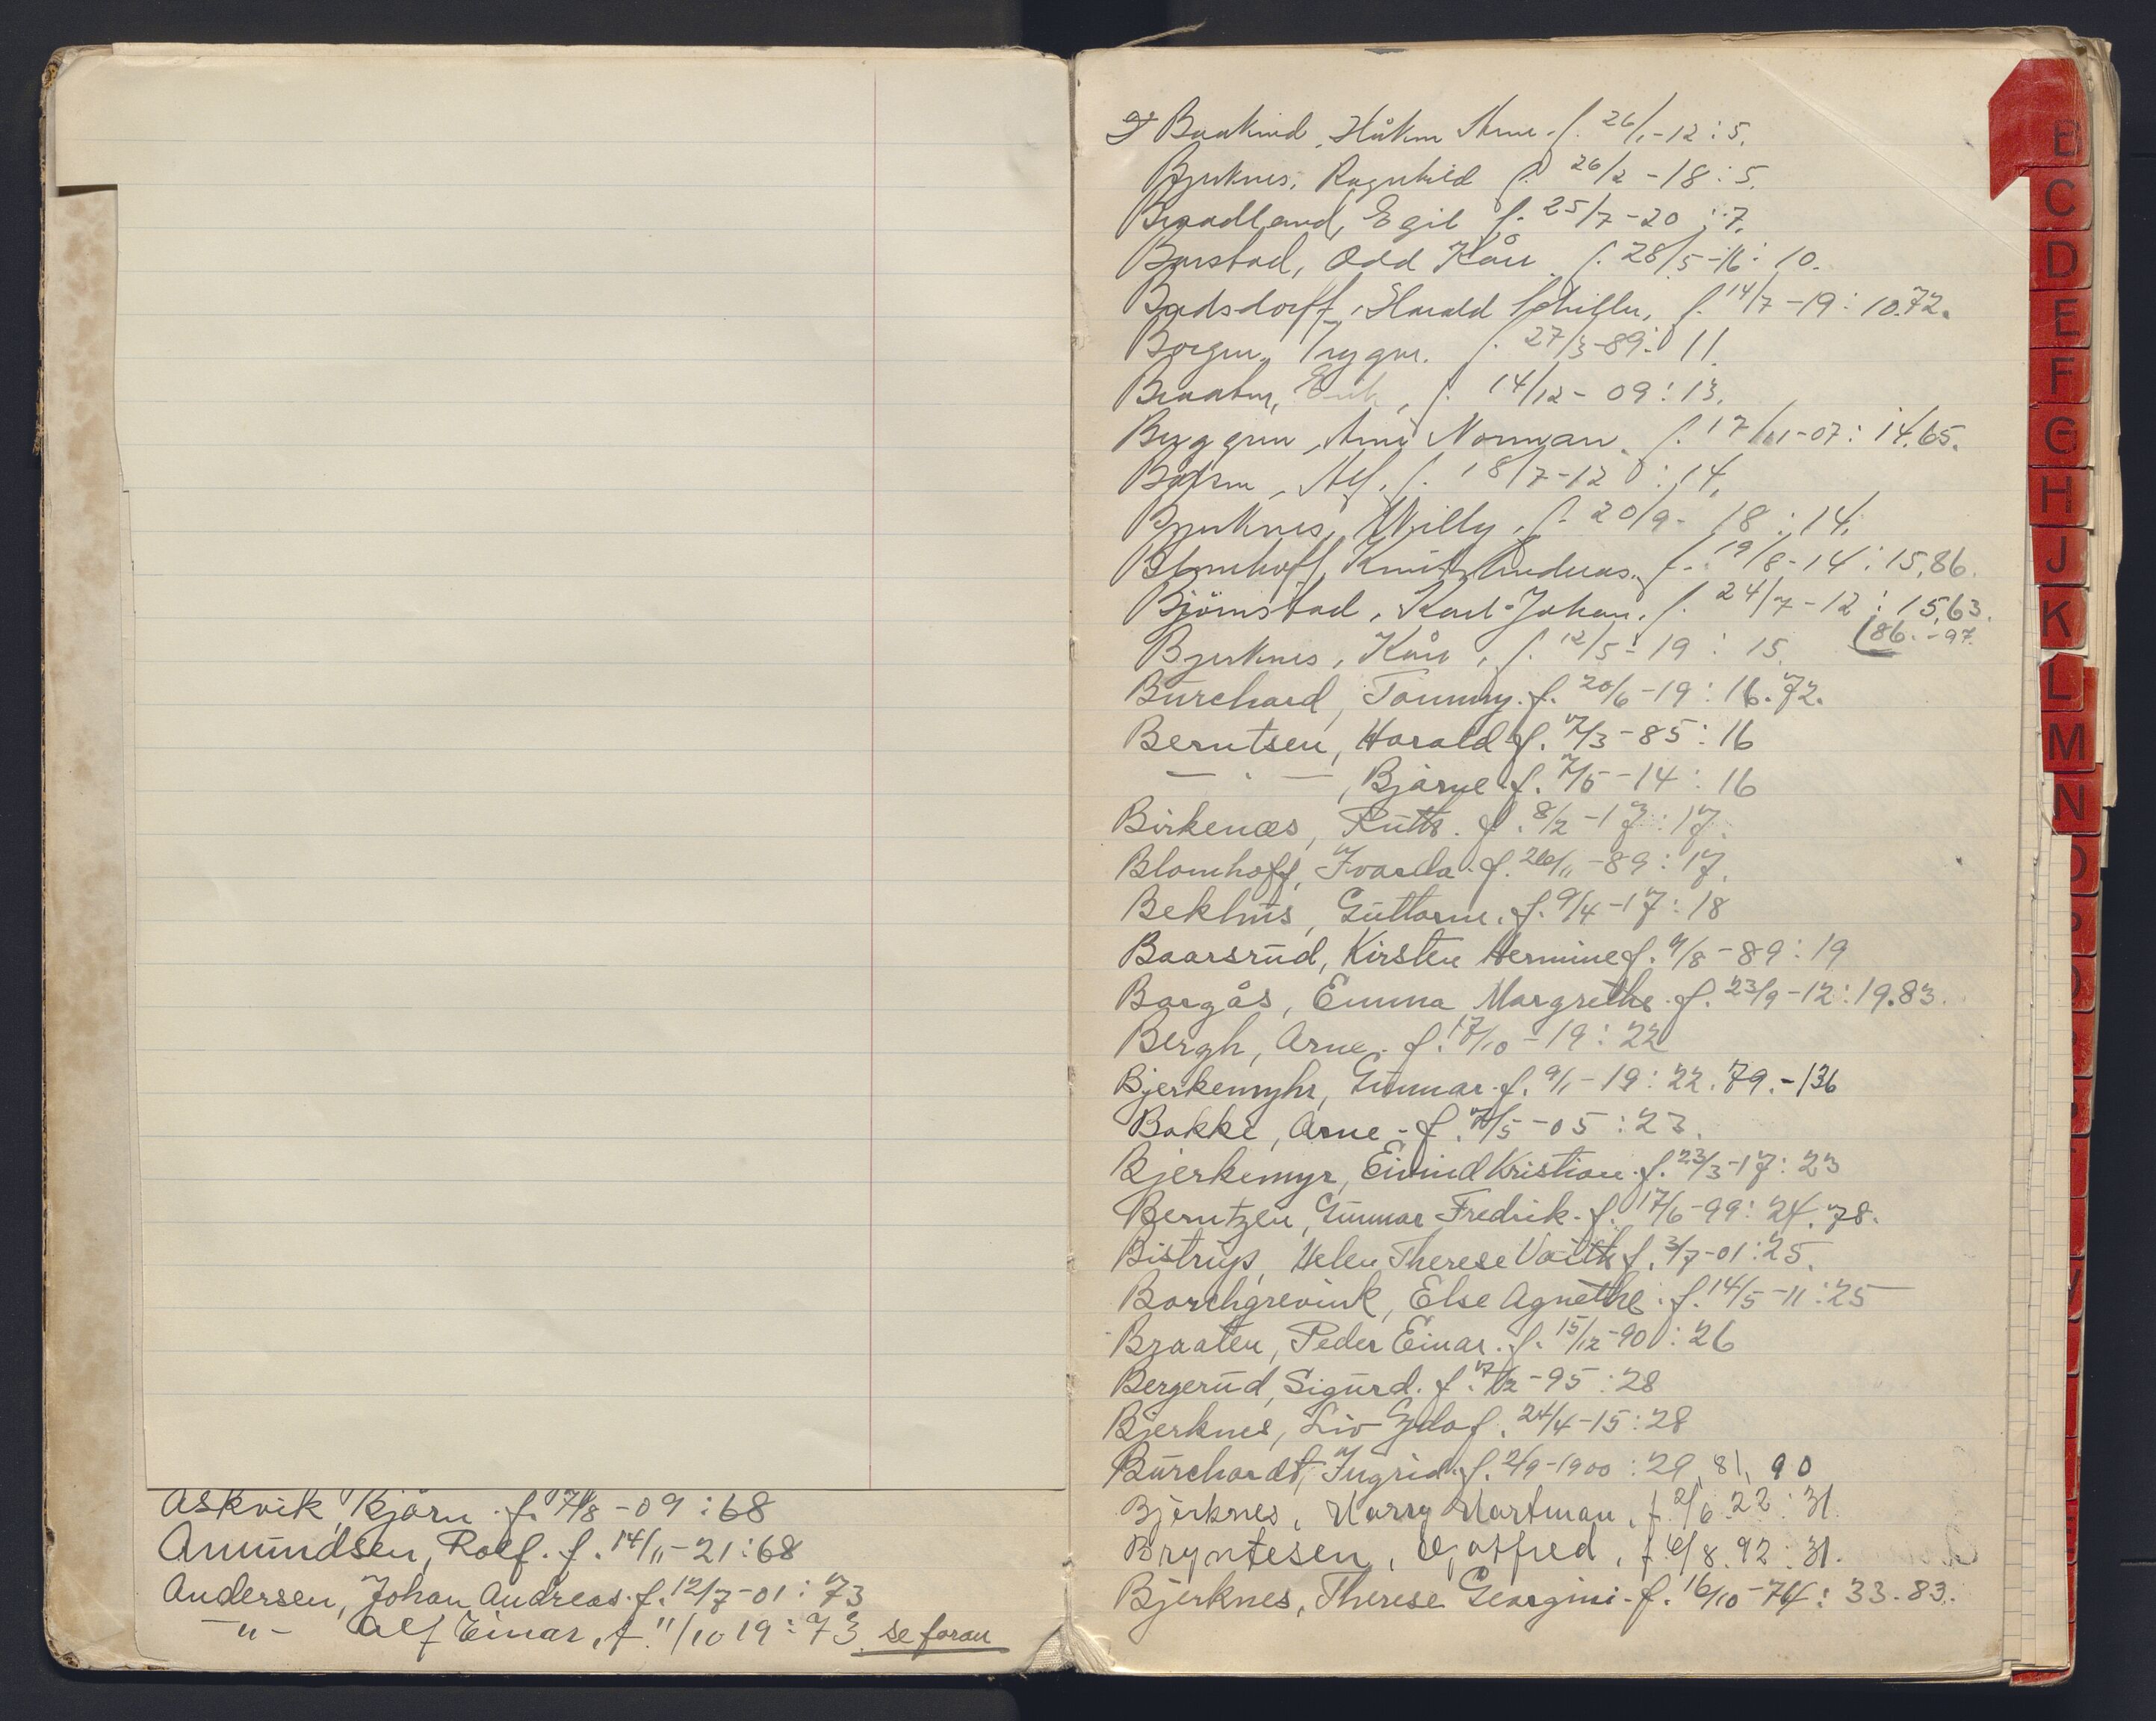 Askvik, Bjørn f. 7/8-09:68
Amundsen, Rolf. f. 14/11-21:68
Andersen, Johan Andreas f. 12/7-01:73
-"- Alf Einar, f. 11/10 19:73 se foran
Håkon Arne. f. 26/1-12:5.
Bjerknes, Ragnhild f. 26/2-18:5.
Braadland, Egil f. 25/7-20:7.
Barstad, Odd Kåre f. 28/5-16:10.
Harald Schiller, f. 14/7-19:10.72.
Borgen, Trygve. f. 27/3-89:11.
Braaten, Erik, f. 14/12-09:13.
Arne Norman. f. 17/11-07:14.65.
Alf. f. 18/7-12:14.
Bjerknes, Willy, f. 20/9-18:14.
Blomhoff, Knut Andreas. f. 19/8-14:15,86.
Bjørnstad, Karl-Johan. f. 24/7-12:15,63.
(86.-97.
Bjerknes, Kåre, f. 12/5-19:15.
Burchard, Tommy. f. 20/6-19:16.72.
Berntsen, Harald f. 7/3-85:16
— " —, Bjarne f. 7/5-14:16
Birkenæs, Ruth. f. 8/2-17:17.
Blomhoff, Ivarda. f. 26/11-89:17.
Bekhus, Guttorm. f. 9/4-17:18
Baarsrud, Kirsten Hermine f. 9/8-89:19
Bargås, Emma Margrethe. f. 23/9-12:19.83.
Bergh, Arne. f. 17/10-19:22
Bjerkemyhr, Gunnar. f. 9/1-19:22.79.-136
Bakke, Arne - f. 7/5-05:23.
Bjerkemyr, Eivind Kristian. f. 23/3-17:23
Berntzen, Gunnar Fredrik. f. 17/6-99:24.78.
Bistrup, Helen Therese Voith f. 3/7-01:25.
Borchgrevink, Else Agnethe. f. 14/5-11:25
Braaten, Peder Einar. f. 15/12-90:26
Bergerud, Sigurd. f. 7/2-95:28
Bjerknes, Liv Gyda f. 24/4-15:28
Burchardt, Ingrid. f. 2/9-1900:29, 81, 90
Bjerknes, Harry Hartman, f. 2/6 22:31.
Bryntesen, Gotfred, f. 6/8.92:31.
Bjerknes, Therese Georgini. f. 16/10-74:33.83.
B
C
D
E
F
G
H
J
K
L
M
N